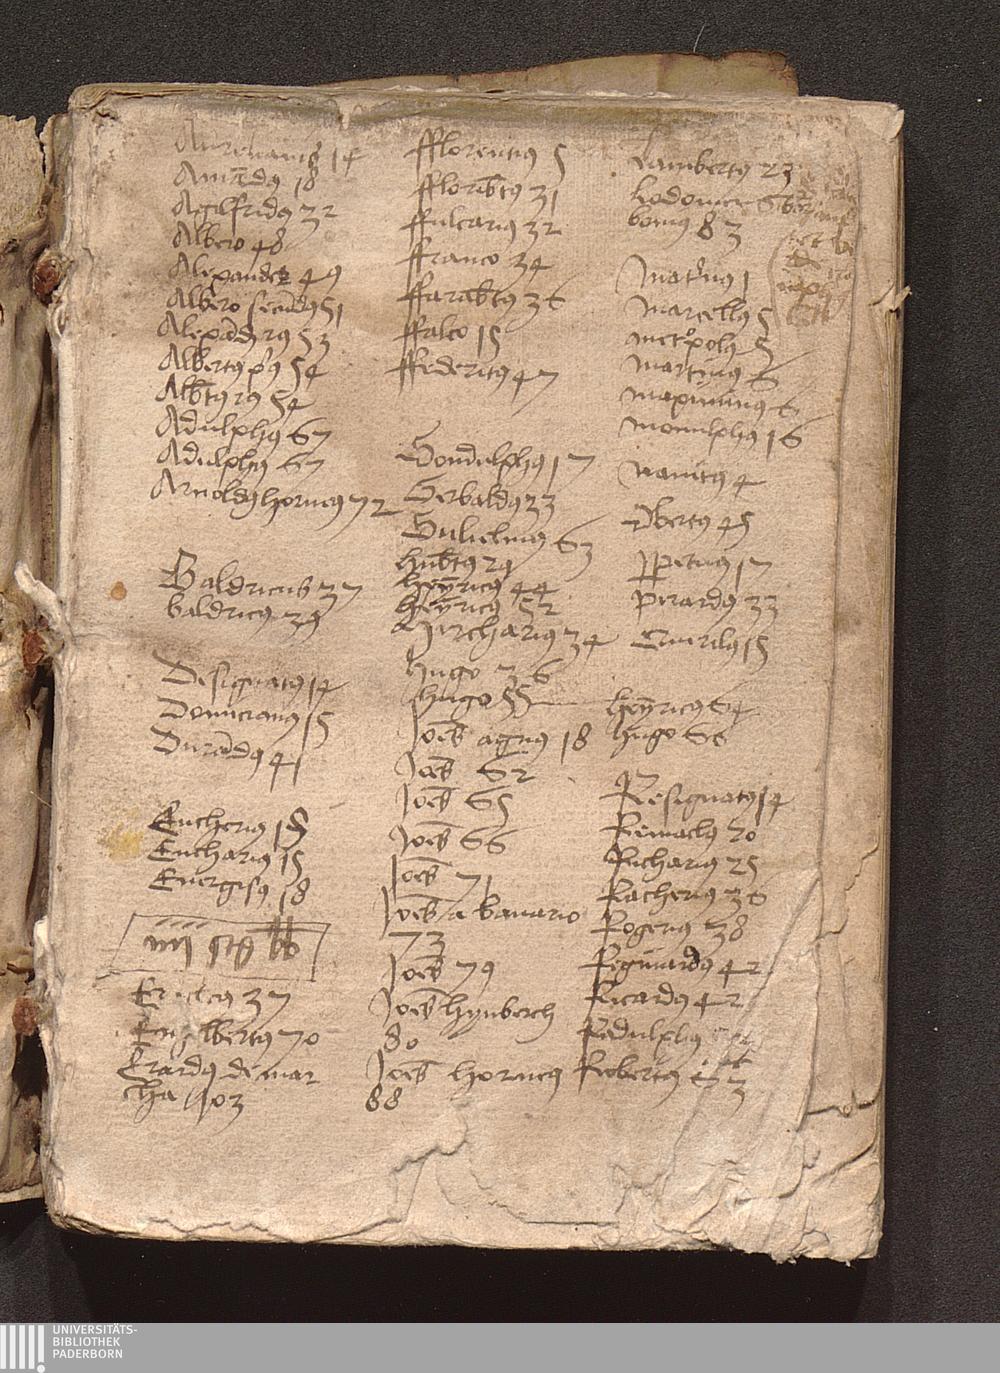 Aurelianus 14
Amandus 18
Agilfridus 32
Albero 48
Alexander 49
Albero secundus 51
Alexander 2us 53
Albertus pus 54
Albtus 2us 54
Adulphus 67
Adulphus 67
Arnoldus hornus 72
Baldricus 37
baldricus 39
Designatus 14
Domicianus 15
Durandus 41
Eucherius 15
Eucharius 15
Euergisus 18
Eraclius 37
Engelbertus 70
Erardus de mar
cha 103
fflorentius 5
ffloribtus 31
ffulcarius 32
ffranco 34
ffarabtus 36
ffalco 15
ffedericus 47
Gondulphus 17
Gerbaldus 33
Gulielmus 63
hubtus 29
heynricus 44
heynricus 52
Hircharius 34
hugo 36
hugo 55
Joes agnus 18
Joes 62
Joes 65
Joes 66
Joes 71
Joes a bauario
73
Joes 79
Joes hynberch
80
Joes hornus
88
Lambertus 23
Lodouicus 66
bonus 83
Maternus 1
Marcellus 5
metropolus 5
martinus 6
maximinus 6
monulphus 16
nauitus 4
Obertus 45
ppetuus 17
pirardus 33
Quirilus 15
heynricus 64
hugo 66
Resignatus 14
Remaclus 20
Richarius 25
Racherius 36
Rogerus 38
Reginardus 42
Ricardus 42
Radulphus
Robertus 63
UNIVERSITÄTS-
BIBLIOTHEK
PADERBORN